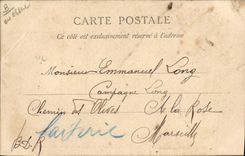 CARTE POSTALE
Ce côté est exclusivement réservé à l'adresse
Monsieur Emmanuel Long
Campagne Long
Chemin des Olives
à la Rose
Marseille
B.D.R